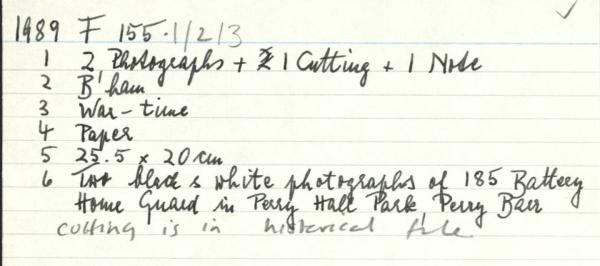 1989 F 155.1/2/3
1 2 Photographs + 1 Cutting + 1 Note
2 B'ham
3 War-time
4 Paper
5 25.5 x 20 cm
6 Two black & white photographs of 185 Battery
Home Guard in Perry Hall Park, Perry Barr
cutting is in historical file